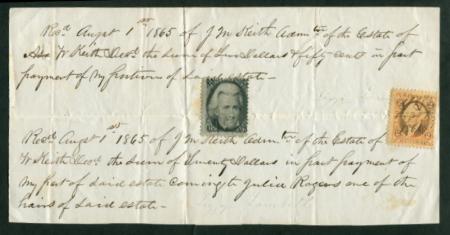 Recd Augst 1st 1865 of J M Keith Admtr of the Estate of
W Keith Decd the sum of Dollars & fifty cent in part
payment of My portion of said estate —
Recd Augst 1st 1865 of J M Keith Admtr of the Estate of
W Keith Decd the sum of twenty Dollars in part payment of
My part of said estate coming to Julia Rogers one of the
hairs of said estate —